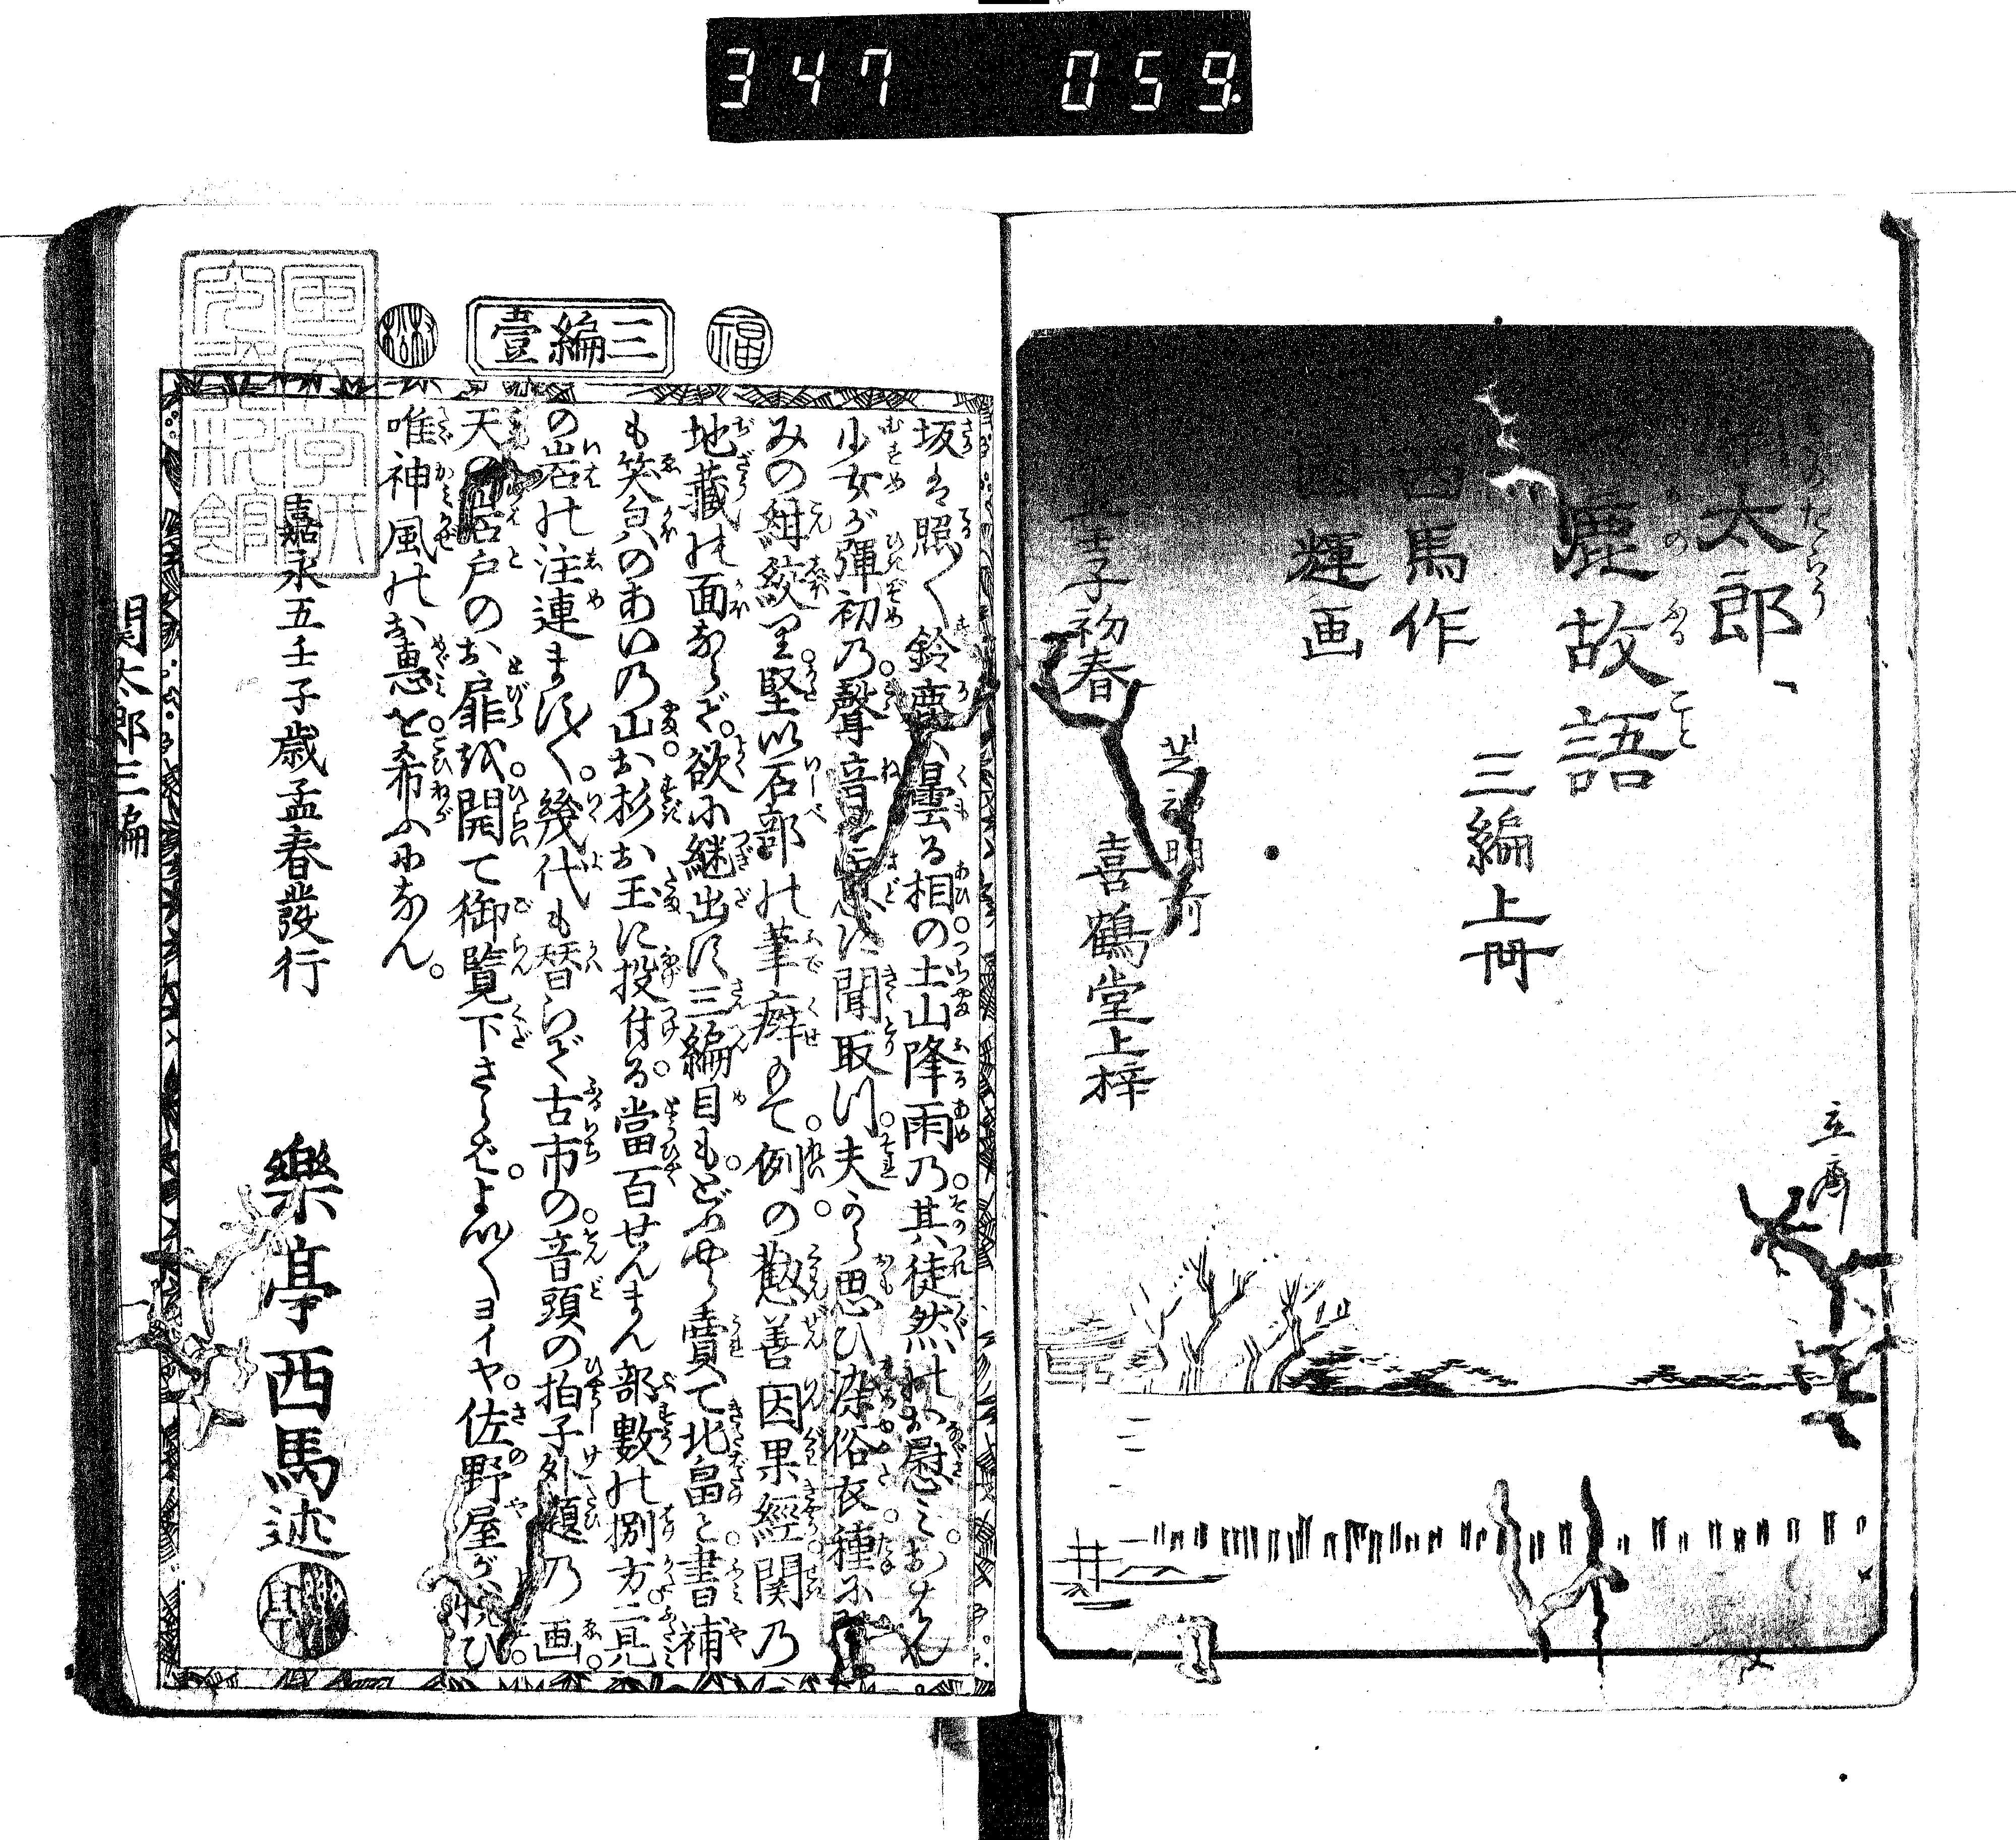 347 059
太郎
鹿故語
三編上冊
西馬作
国輝画
壬子初春
芝神明前
喜鶴堂上梓
立齋
福
三編壹
坂は照〳〵鈴鹿ハ曇る相の土山降雨乃其徒然のお慰ミ
少女が弾初乃聲音を聞取ツ夫から思ひ染俗衣種に
みの紺絞里堅い石部の筆癖みて例の勸善因果經関乃
地藏の面ならぞ欲に継出す三編目もどふやら賣て北畠と書補
も笑貝のあいの山お杉お玉に投付る當百せんまん部數の捌方二見
の岩の注連ます〳〵幾代も替らで古市の音頭の拍子外題乃画
天の岩戸のお扉を開て御覧下さらバよい〳〵ヨイヤ佐野屋が悦び
唯神風のお惠を希ふになん
嘉永五壬子歳孟春發行
樂亭西馬述
関太郎三編